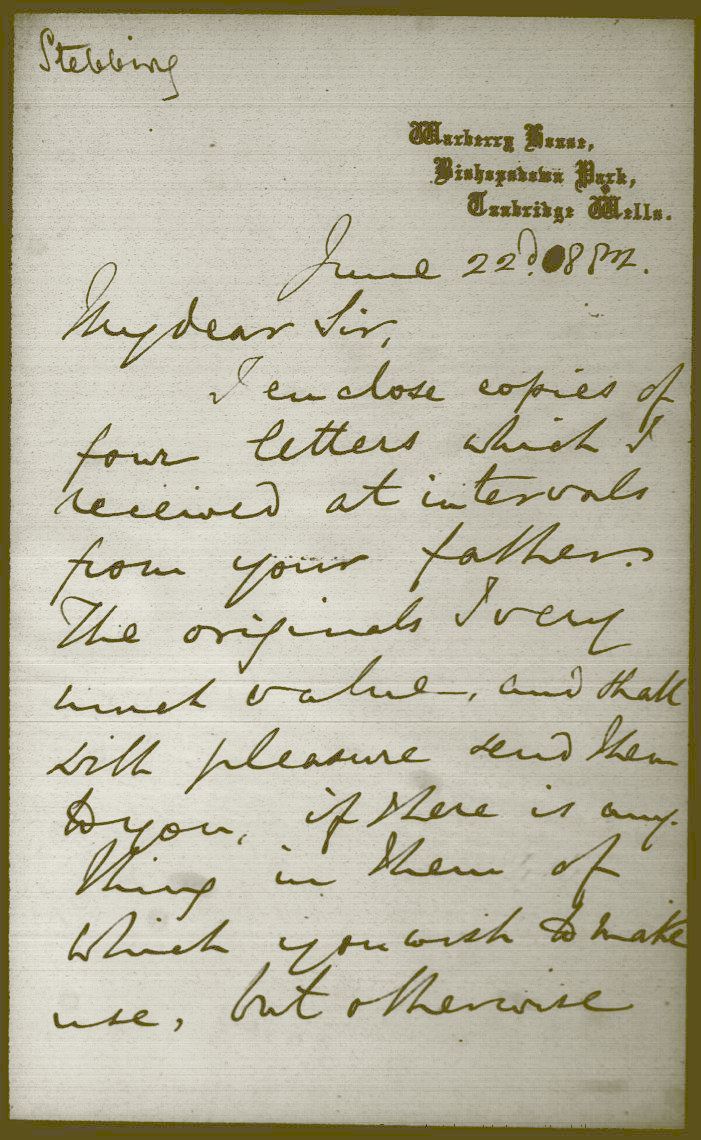 Stebbing
Warberry House,
Bishopsdown Park,
Tunbridge Wells.
June 22d.
My dear Sir,
I enclose copies of
four letters which I
received at intervals
from your father.
The originals I very
much value, and shall
with pleasure send them
to you, if there is any-
thing in them of
which you wish to make
use, but otherwise